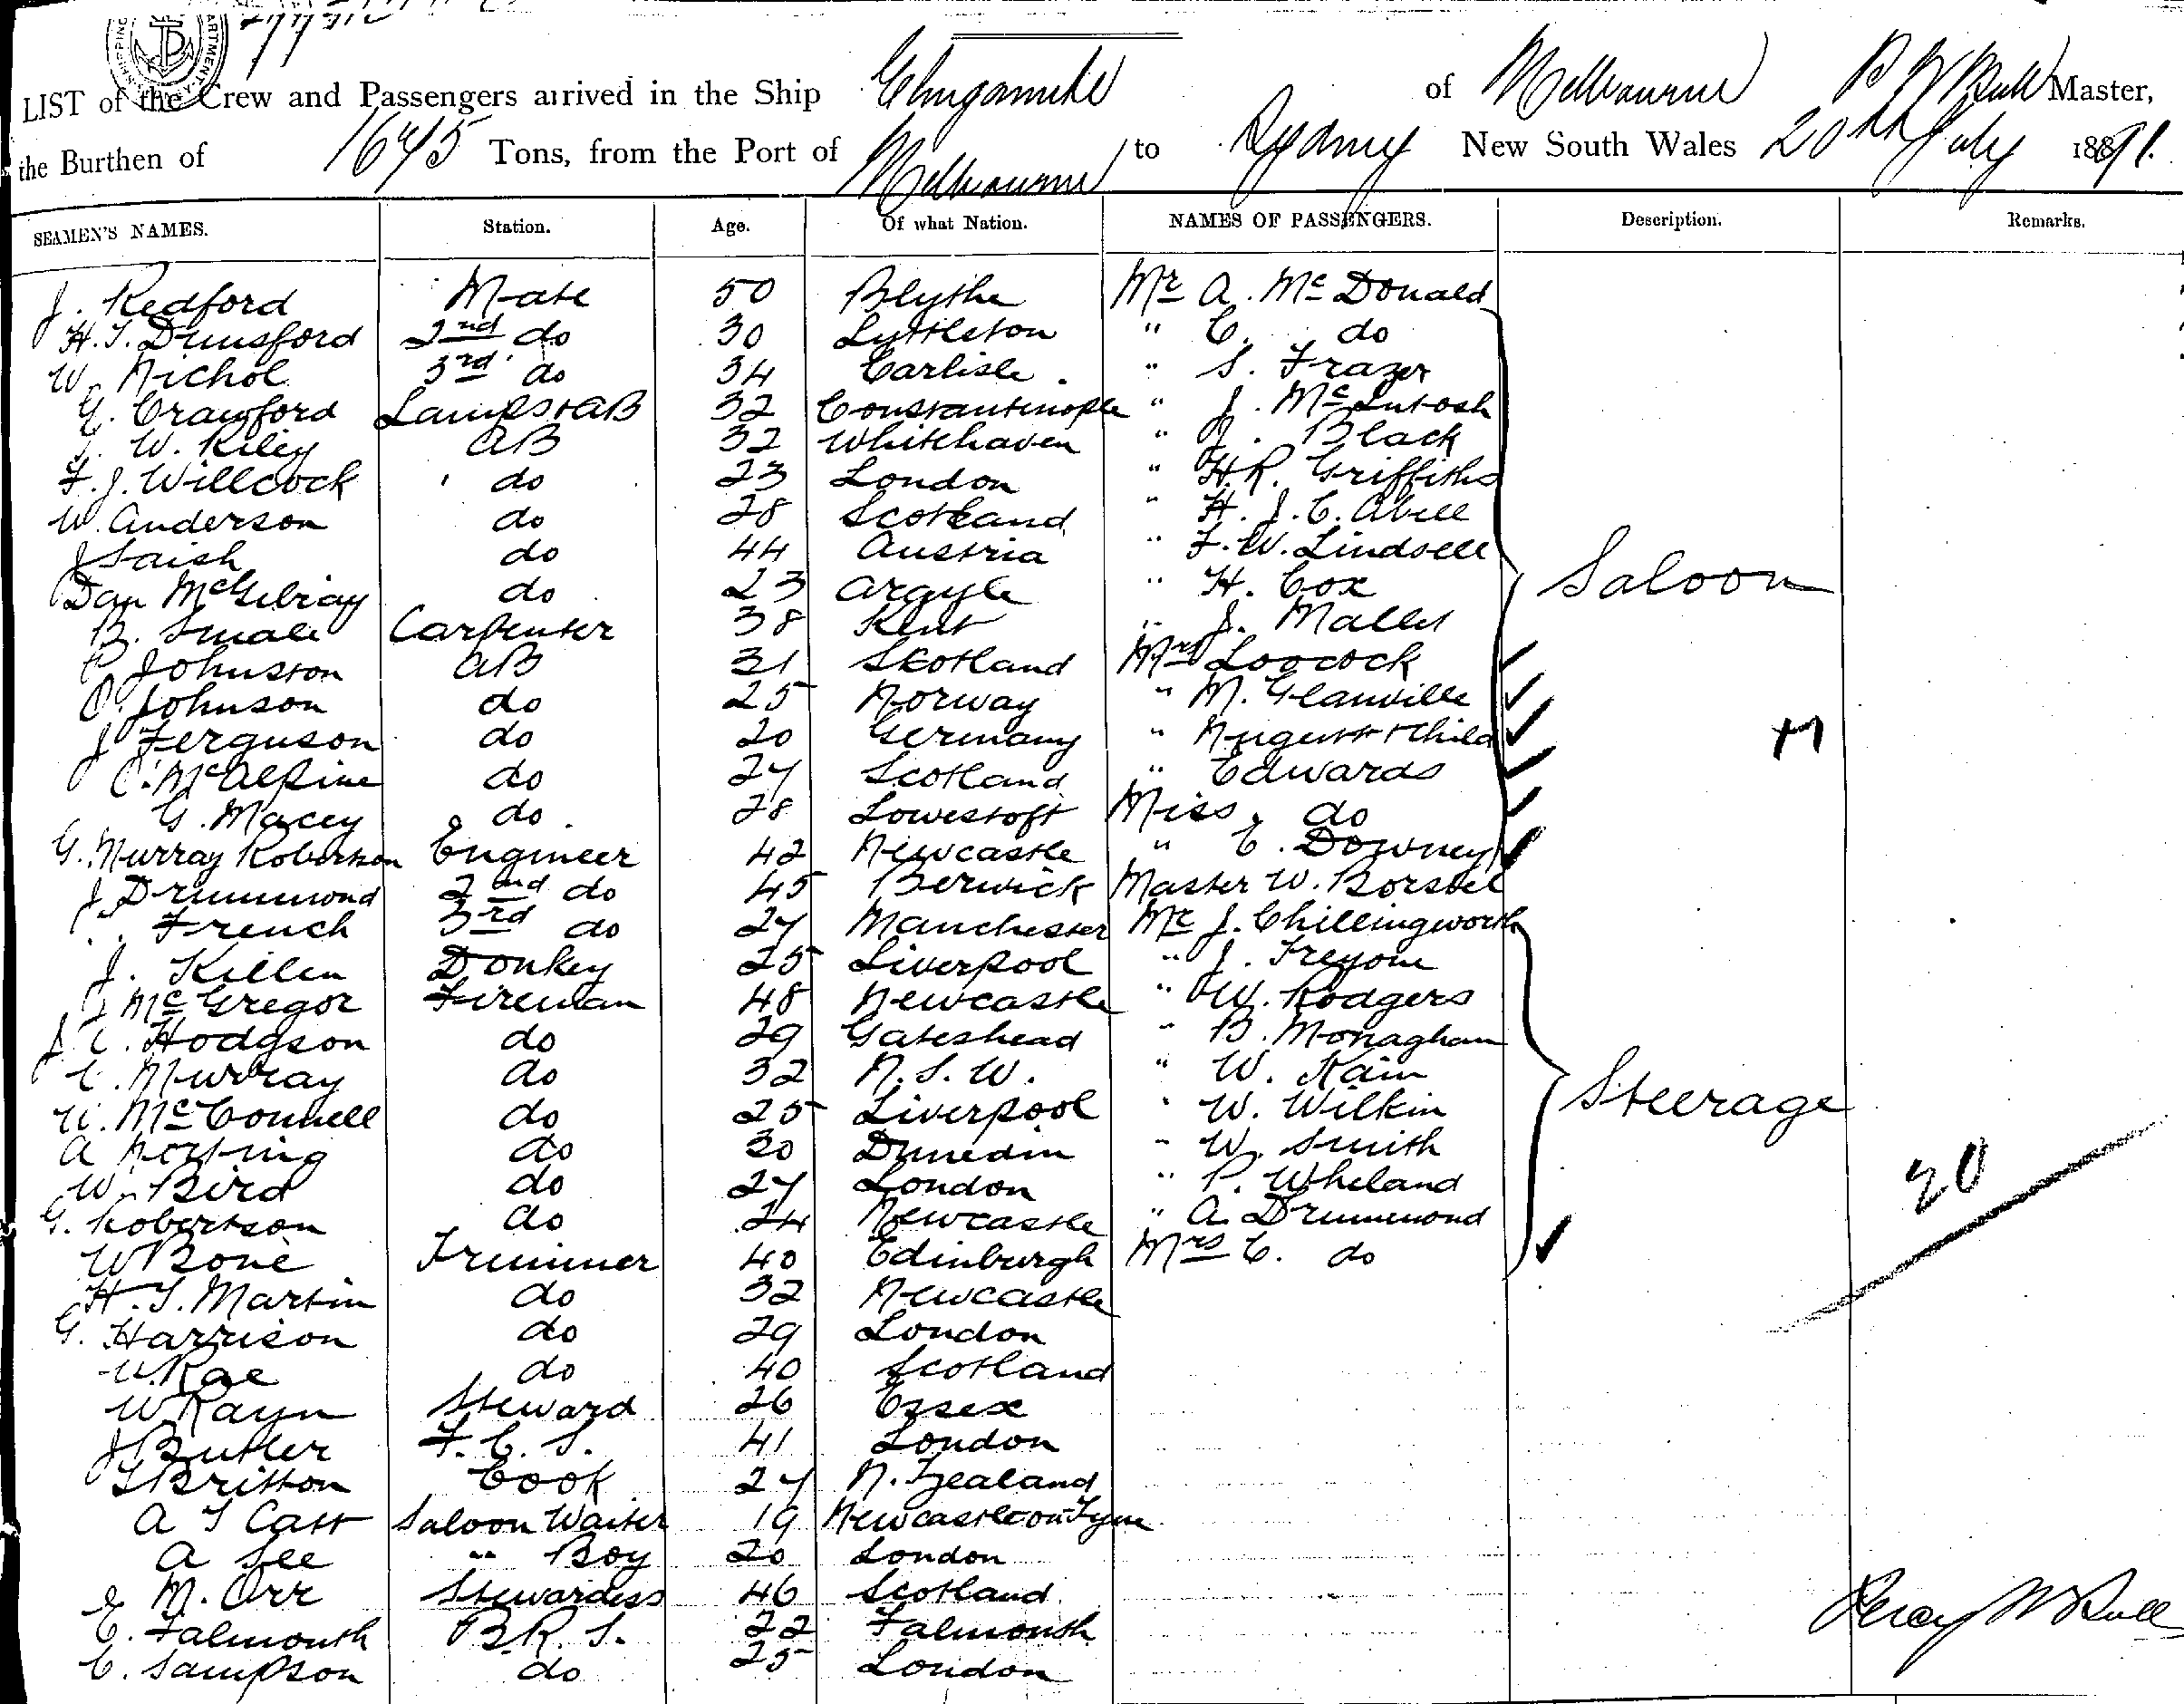 LIST of the Crew and Passengers arrived in the Ship Elingamite of Melbourne P W Bull Master,
the Burthen of 1675 Tons, from the Port of Melbourne to Sydney New South Wales 20th July 1891.
SEAMEN'S NAMES. Station. Age. Of what Nation. NAMES OF PASSENGERS. Description. Remarks.
J. Redford Mate 50 Blythe Mr A. McDonald
H. T. Dunsford 2nd do 30 Lyttleton " C. do
W. Nichol 3rd do 34 Carlisle " S. Frazer
G. Crawford Lamps & AB 32 Constantinople " J. McIntosh
J. W. Riley AB 32 Whitehaven " J. Black
F. J. Willcock do 23 London " H. R. Griffiths
W. Anderson do 28 Scotland " H. J. C. Abell
J Saish do 44 Austria " F. W. Lindsell
Dan McGilvray do 23 Argyle " H. Cox Saloon
B. Smale Carpenter 38 Kent " J. Mallet
P Johnston AB 31 Scotland Mrs Loocock
O. Johnson do 25 Norway " M. Glanville
J Ferguson do 20 Germany " Nugent & Child
C. McAlpine do 27 Scotland " Edwards
G. Macey do 28 Lowestoft Miss do
G. Murray Robertson Engineer 42 Newcastle " E. Downey
J. Drummond 2nd do 45 Berwick Master W. Borstel
French 3rd do 27 Manchester Mr J. Chillingworth
J. Killen Donkey 25 Liverpool " J.
J McGregor Fireman 48 Newcastle " W. Rodgers
J. C. Hodgson do 29 Gateshead " B. Monaghan
C. Murray do 32 N. S. W. " W. Kain
W. McConnell do 25 Liverpool " W. Wilkin Steerage
A do 30 Dunedin " W. Smith
W. Bird do 27 London " P. Wheland 20
G. Robertson do 24 Newcastle " A. Drummond
W Bone Trimmer 40 Edinburgh Mrs C. do
H. T. Martin do 32 Newcastle
G. Harrison do 29 London
W. Rae do 40 Scotland
W Rayn Steward 26 Essex
J Butler F. C. S. 41 London
T Britton Cook 27 N. Zealand
A T Catt Saloon Waiter 19 Newcastle on Tyne
A See " Boy 20 London
E M. Orr Stewardess 46 Scotland
C. Falmouth B. R. S. 22 Falmouth
C. Sampson do 25 London
Percy W Bull